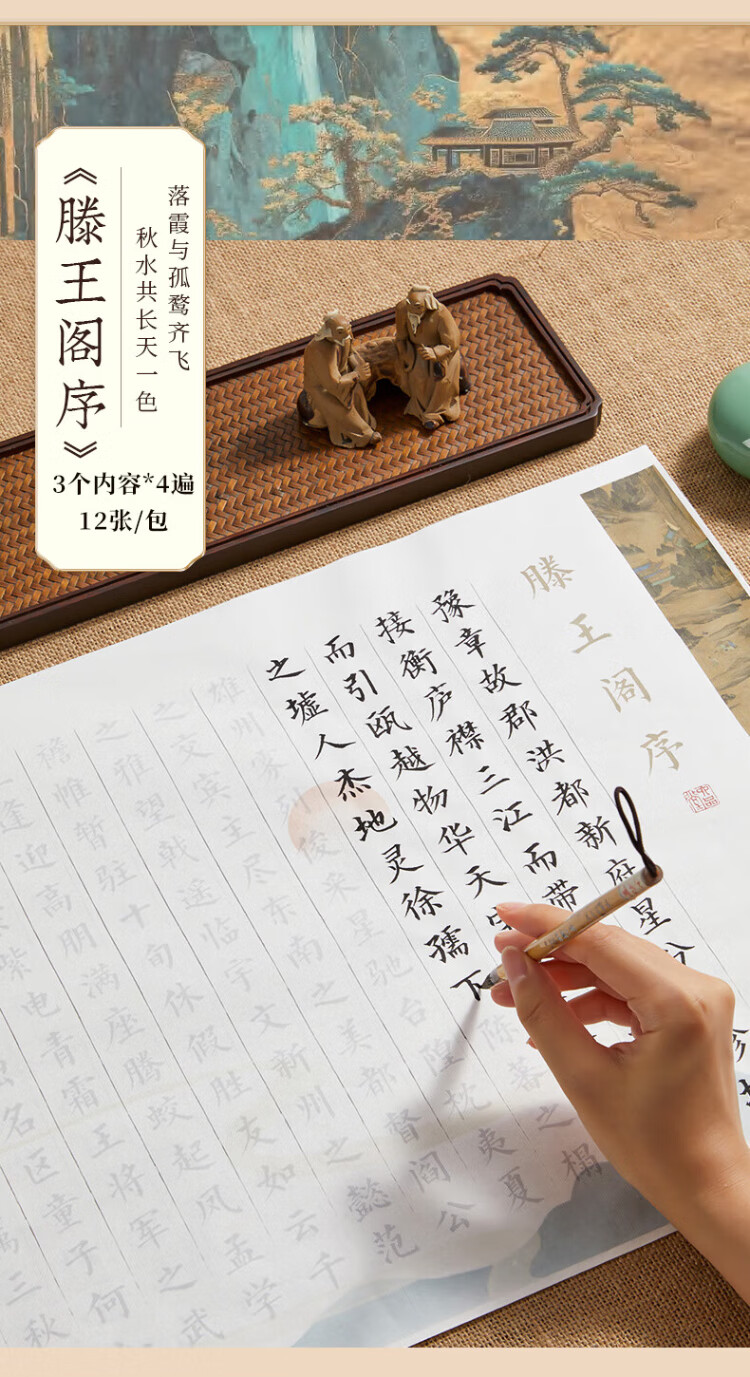 《滕王阁序》
落霞与孤鹜齐飞
秋水共长天一色
3个内容*4遍
12张/包
滕王阁序
豫章故郡洪都新府星分
接衡庐襟三江而带
而引瓯越物华天
之墟人杰地灵徐孺下陈蕃之榻
雄州雾列俊采星驰台隍枕夷夏
之交宾主尽东南之美都督阎公
之雅望戟遥临宇文新州之懿范
襜帷暂驻十旬休假胜友如云千
逢迎高朋满座腾蛟起凤孟学
紫电青霜王将军之武
名区童子何
三秋